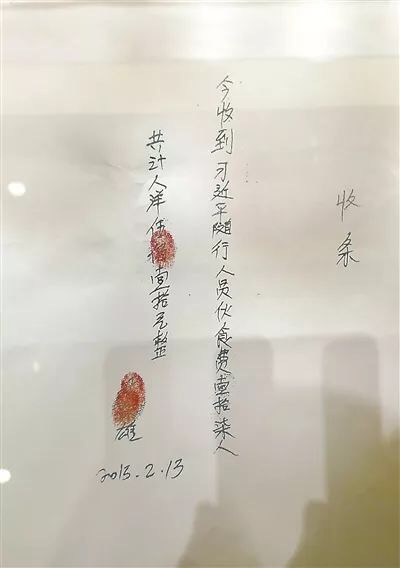 收条
今收到习近平随行人员伙食费壹拾柒人
共计人洋伍壹拾元整
雄
2015.2.13